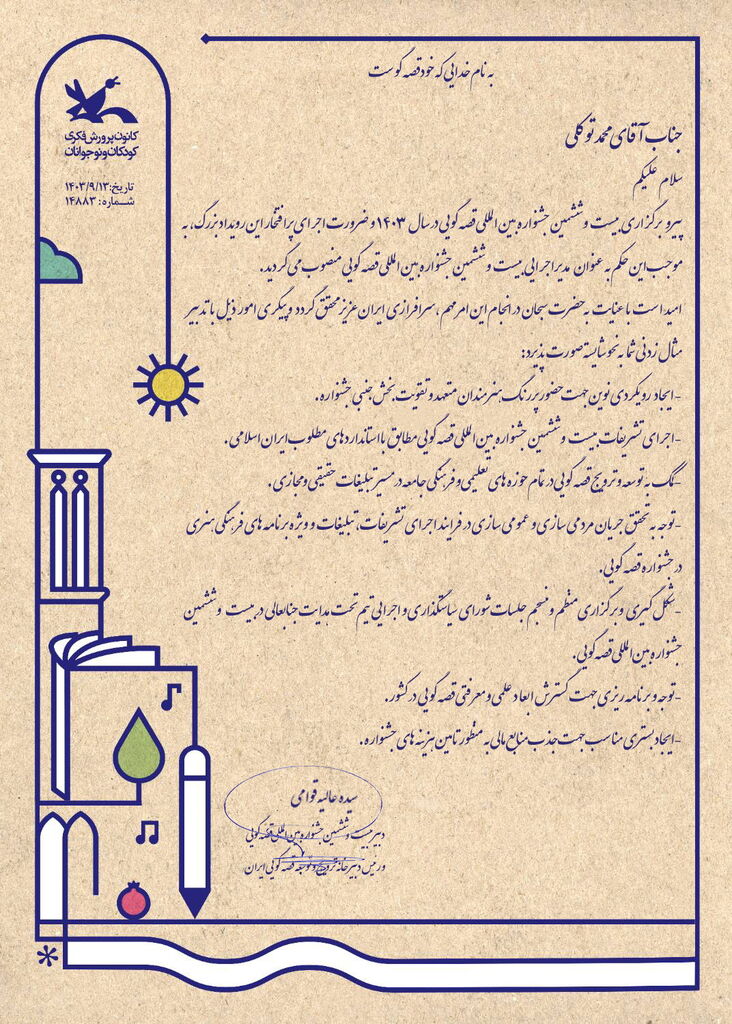 به نام خدایی که خود قصه گوست
کانون پرورش فکری
کودکان و نوجوانان
تاریخ: ۱۴۰۳/۹/۱۳
شماره: ۱۴۸۸۳
جناب آقای محمد توکلی
سلام علیکم
پیرو برگزاری بیست و ششمین جشنواره بین المللی قصه گویی در سال ۱۴۰۳ و ضرورت اجرای پر افتخار این رویداد بزرگ، به
موجب این حکم به عنوان مدیر اجرایی بیست و ششمین جشنواره بین المللی قصه گویی منصوب می گردید.
امید است با عنایت به حضرت سبحان در انجام این امر مهم، سرافرازی ایران عزیز محقق گردد و پیگیری امور ذیل با تدبیر
مثال زدنی شما به نحو شایسته صورت پذیرد:
-ایجاد رویکردی نوین جهت حضور پررنگ هنرمندان متعهد و تقویت بخش جنبی جشنواره.
-اجرای تشریفات بیست و ششمین جشنواره بین المللی قصه گویی مطابق با استانداردهای مطلوب ایران اسلامی.
-کمک به توسعه و ترویج قصه گویی در تمام حوزه های تعلیمی و فرهنگی جامعه در مسیر تبلیغات حقیقی و مجازی.
-توجه به تحقق جریان مردمی سازی و عمومی سازی در فرایند اجرای تشریفات، تبلیغات و ویژه برنامه های فرهنگی هنری
در جشنواره قصه گویی.
-شکل گیری و برگزاری منظم و منسجم جلسات شورای سیاستگذاری و اجرایی تیم تحت هدایت جنابعالی در بیست و ششمین
جشنواره بین المللی قصه گویی.
-توجه و برنامه ریزی جهت گسترش ابعاد علمی و معرفتی قصه گویی در کشور.
-ایجاد بستری مناسب جهت جذب منابع مالی به منظور تامین هزینه های جشنواره.
سیده عالیه قوامی
دبیر بیست و ششمین جشنواره بین المللی قصه گویی
و رییس دبیرخانه ترویج و توسعه قصه گویی ایران